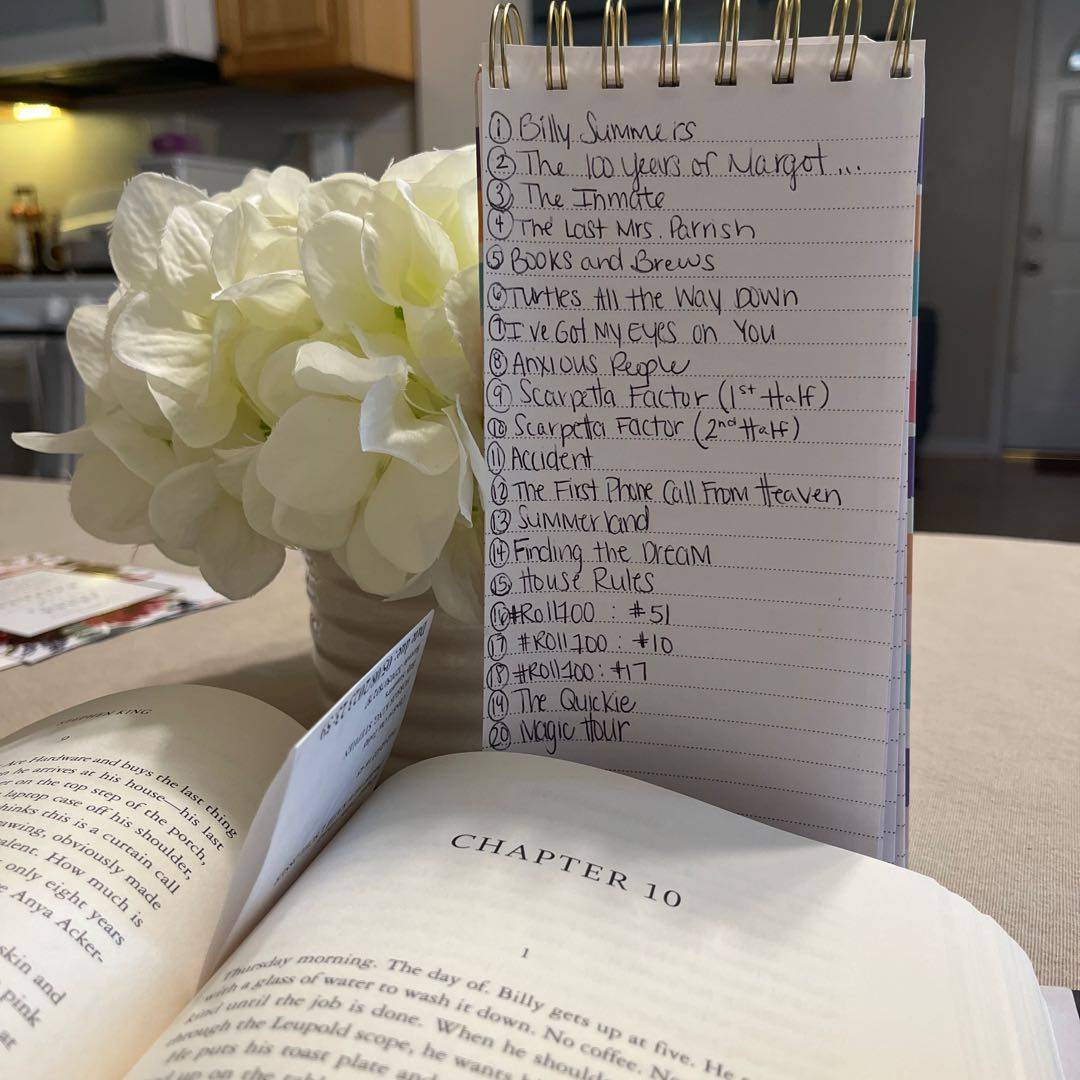 ① Billy Summers
② The 100 Years of Margot...
③ The Inmate
④ The Last Mrs. Parrish
⑤ Books and Brews
⑥ Turtles All the Way Down
⑦ I've Got My Eyes on You
⑧ Anxious People
⑨ Scarpetta Factor (1st Half)
⑩ Scarpetta Factor (2nd Half)
⑪ Accident
⑫ The First Phone Call From Heaven
⑬ Summerland
⑭ Finding the Dream
⑮ House Rules
⑯ #Roll100 : #51
⑰ #Roll100 : #10
⑱ #Roll100 : #17
⑲ The Quickie
⑳ Magic Hour
STEPHEN KING
9
Ace Hardware and buys the last thing
he arrives at his house—his last
on the top step of the porch,
laptop case off his shoulder,
thinks this is a curtain call
obviously made
How much is
only eight years
Anya Acker-
skin and
pink
at
CHAPTER 10
1
Thursday morning. The day of. Billy gets up at five. He
with a glass of water to wash it down. No coffee. No
kind until the job is done. When he
through the Leupold scope, he wants
He puts his toast plate and